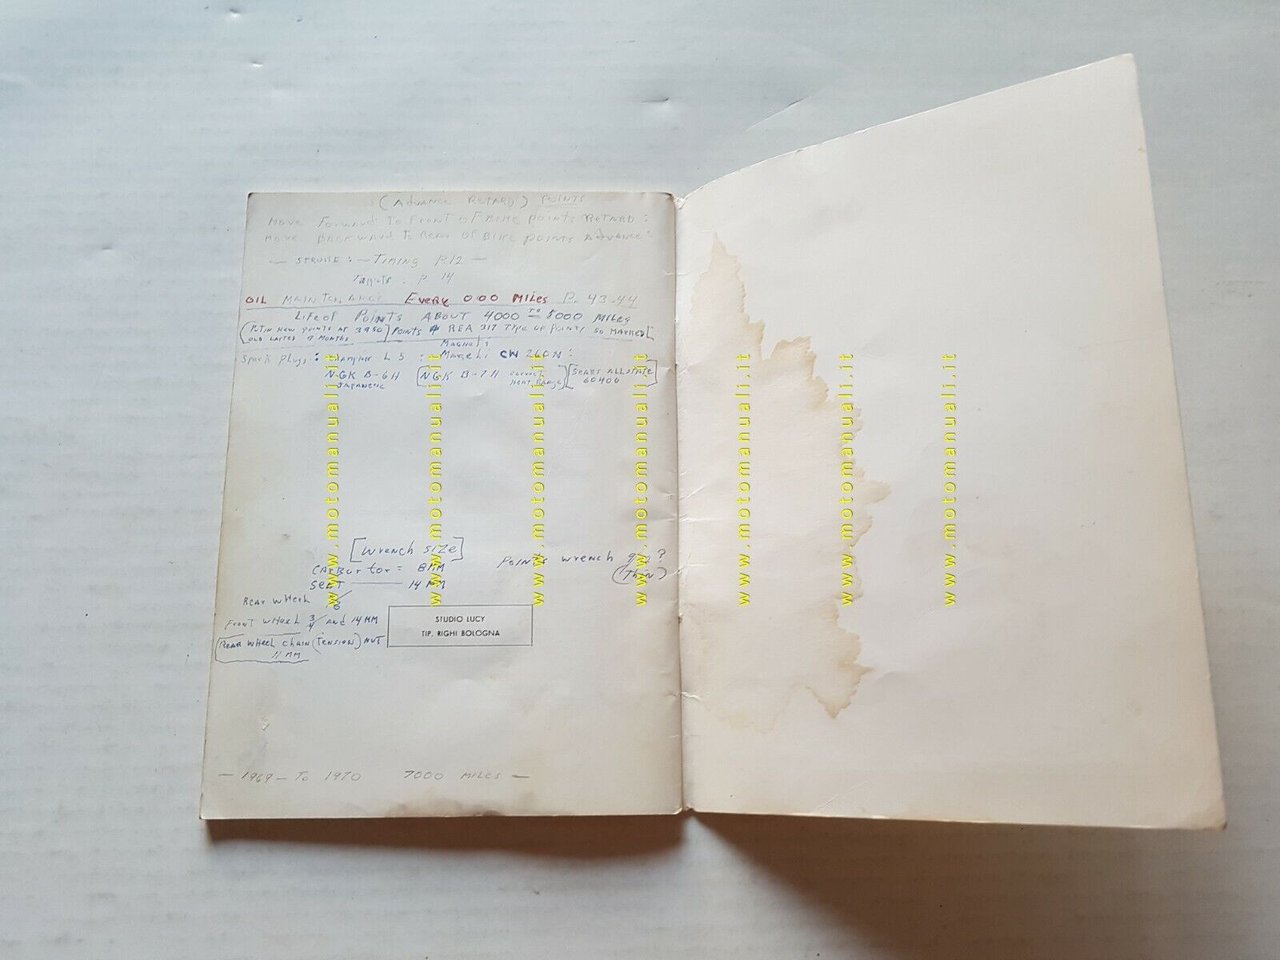 (ADVANCE RETARD) POINTS
MOVE FORWARD TO FRONT OF BIKE POINTS RETARD:
MOVE BACKWARD TO REAR OF BIKE POINTS ADVANCE:
— STROKE: — TIMING P.12 —
Targets: P. 14
OIL MAINTENANCE EVERY 000 MILES P. 43-44
LIFE OF POINTS ABOUT 4000 TO 5000 MILES
(PUT IN NEW POINTS AT 3950] POINTS # REA 317 TYPE OF POINTS SO MARKED[
OLD LASTED 9 MONTHS
MAGNETI
Spark Plugs: L 5 : Marelli CW 260N:
NGK B-6H [NGK B-7H CORRECT HEAT RANGE] [SEARS ALLSTATE 60400]
JAPANESE
[WRENCH SIZE]
CARBURTOR = 8MM
SEAT — 14 MM
POINTS WRENCH ?
(THIN)
REAR WHEEL
FRONT WHEEL 3/4 AND 14MM
REAR WHEEL CHAIN (TENSION) NUT
11 MM
STUDIO LUCY
TIP. RIGHI BOLOGNA
— 1969 — TO 1970 7000 MILES —
www.motomanuali.it
www.motomanuali.it
www.motomanuali.it
www.motomanuali.it
www.motomanuali.it
www.motomanuali.it
www.motomanuali.it